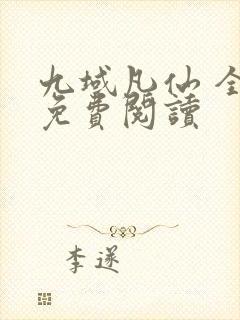 九域凡仙 全
免費閱讀
李遂